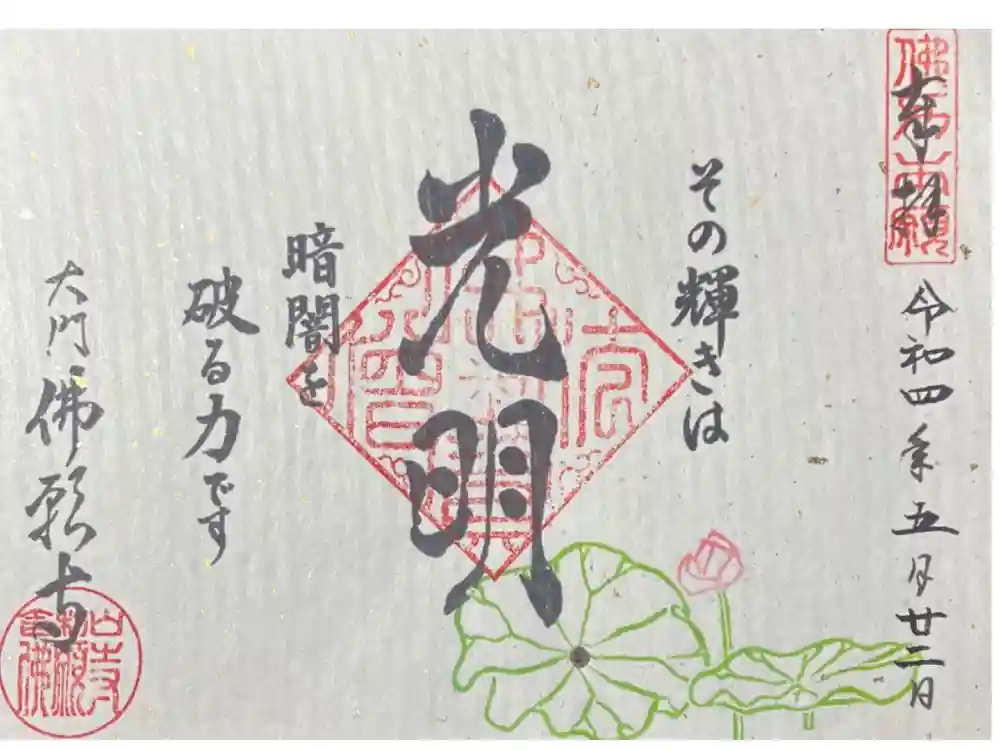 奉拝
令和四年五月廿二日
その輝きは
光明
暗闇を
破る力です
大門 佛願寺